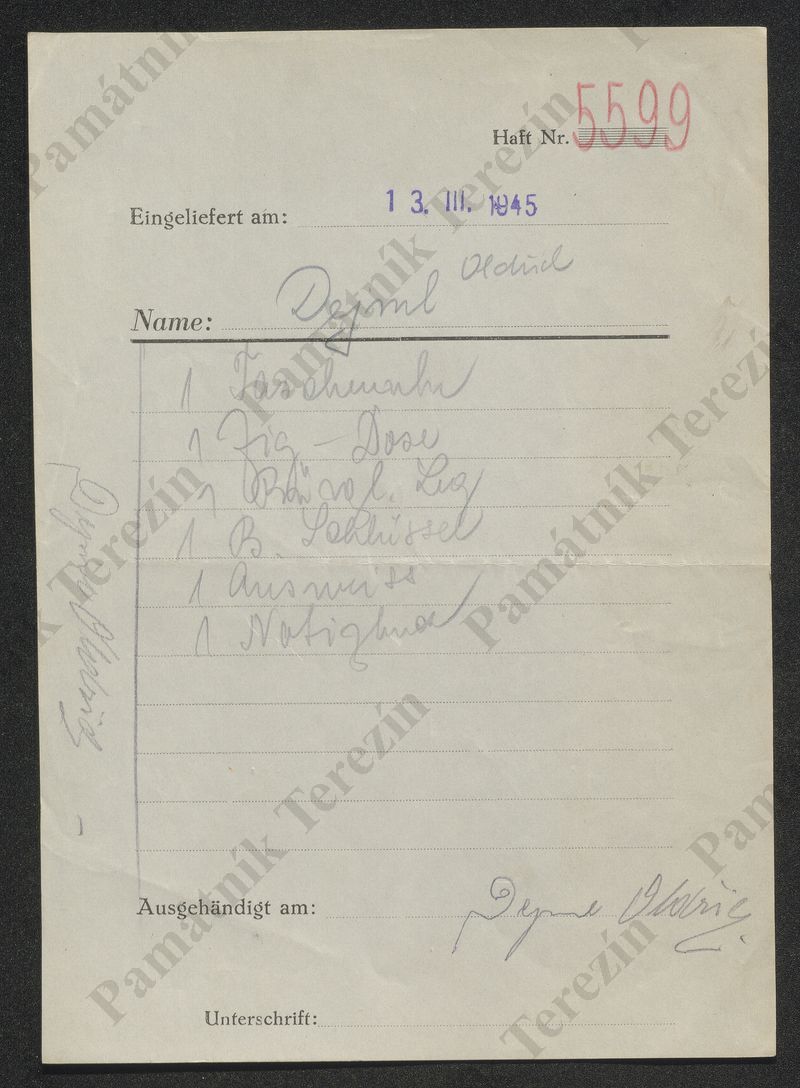 Haft Nr. 5599
Eingeliefert am: 13. III. 1945
Name: Dejml Oldrich
1 Taschenuhr
1 Zig - Dose
1
1 B. Schlüssel
1 Ausweiss
1
Ausgehändigt am: Oldřich
Unterschrift:
Památník Terezín
Památník Terezín
Památník Terezín
Památník Terezín